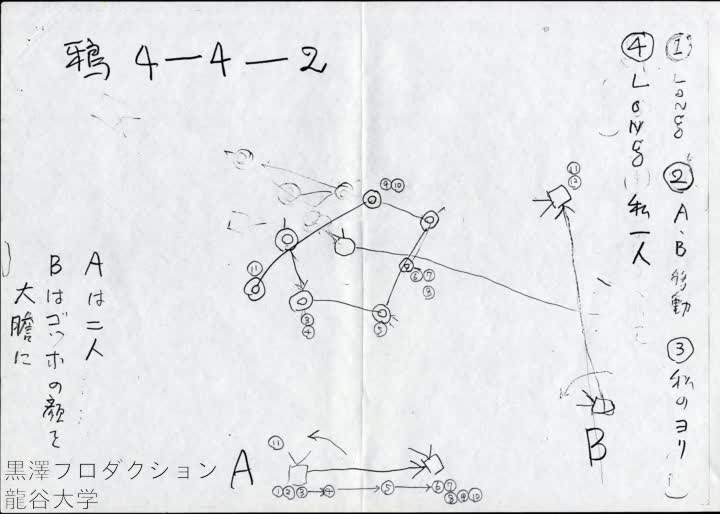 鴉 4-4-2
① Long ② A、B 移動 ③ 私のヨリ
④ Long 私一人
⑪
⑫
⑨⑩
⑪
⑥⑦
⑧
③
④
⑤
Aは二人
Bはゴッホの顔を
大膽に
B
A
⑪
①②③→④→⑤→⑥⑦
⑧⑨⑩
黒澤プロダクション
龍谷大学